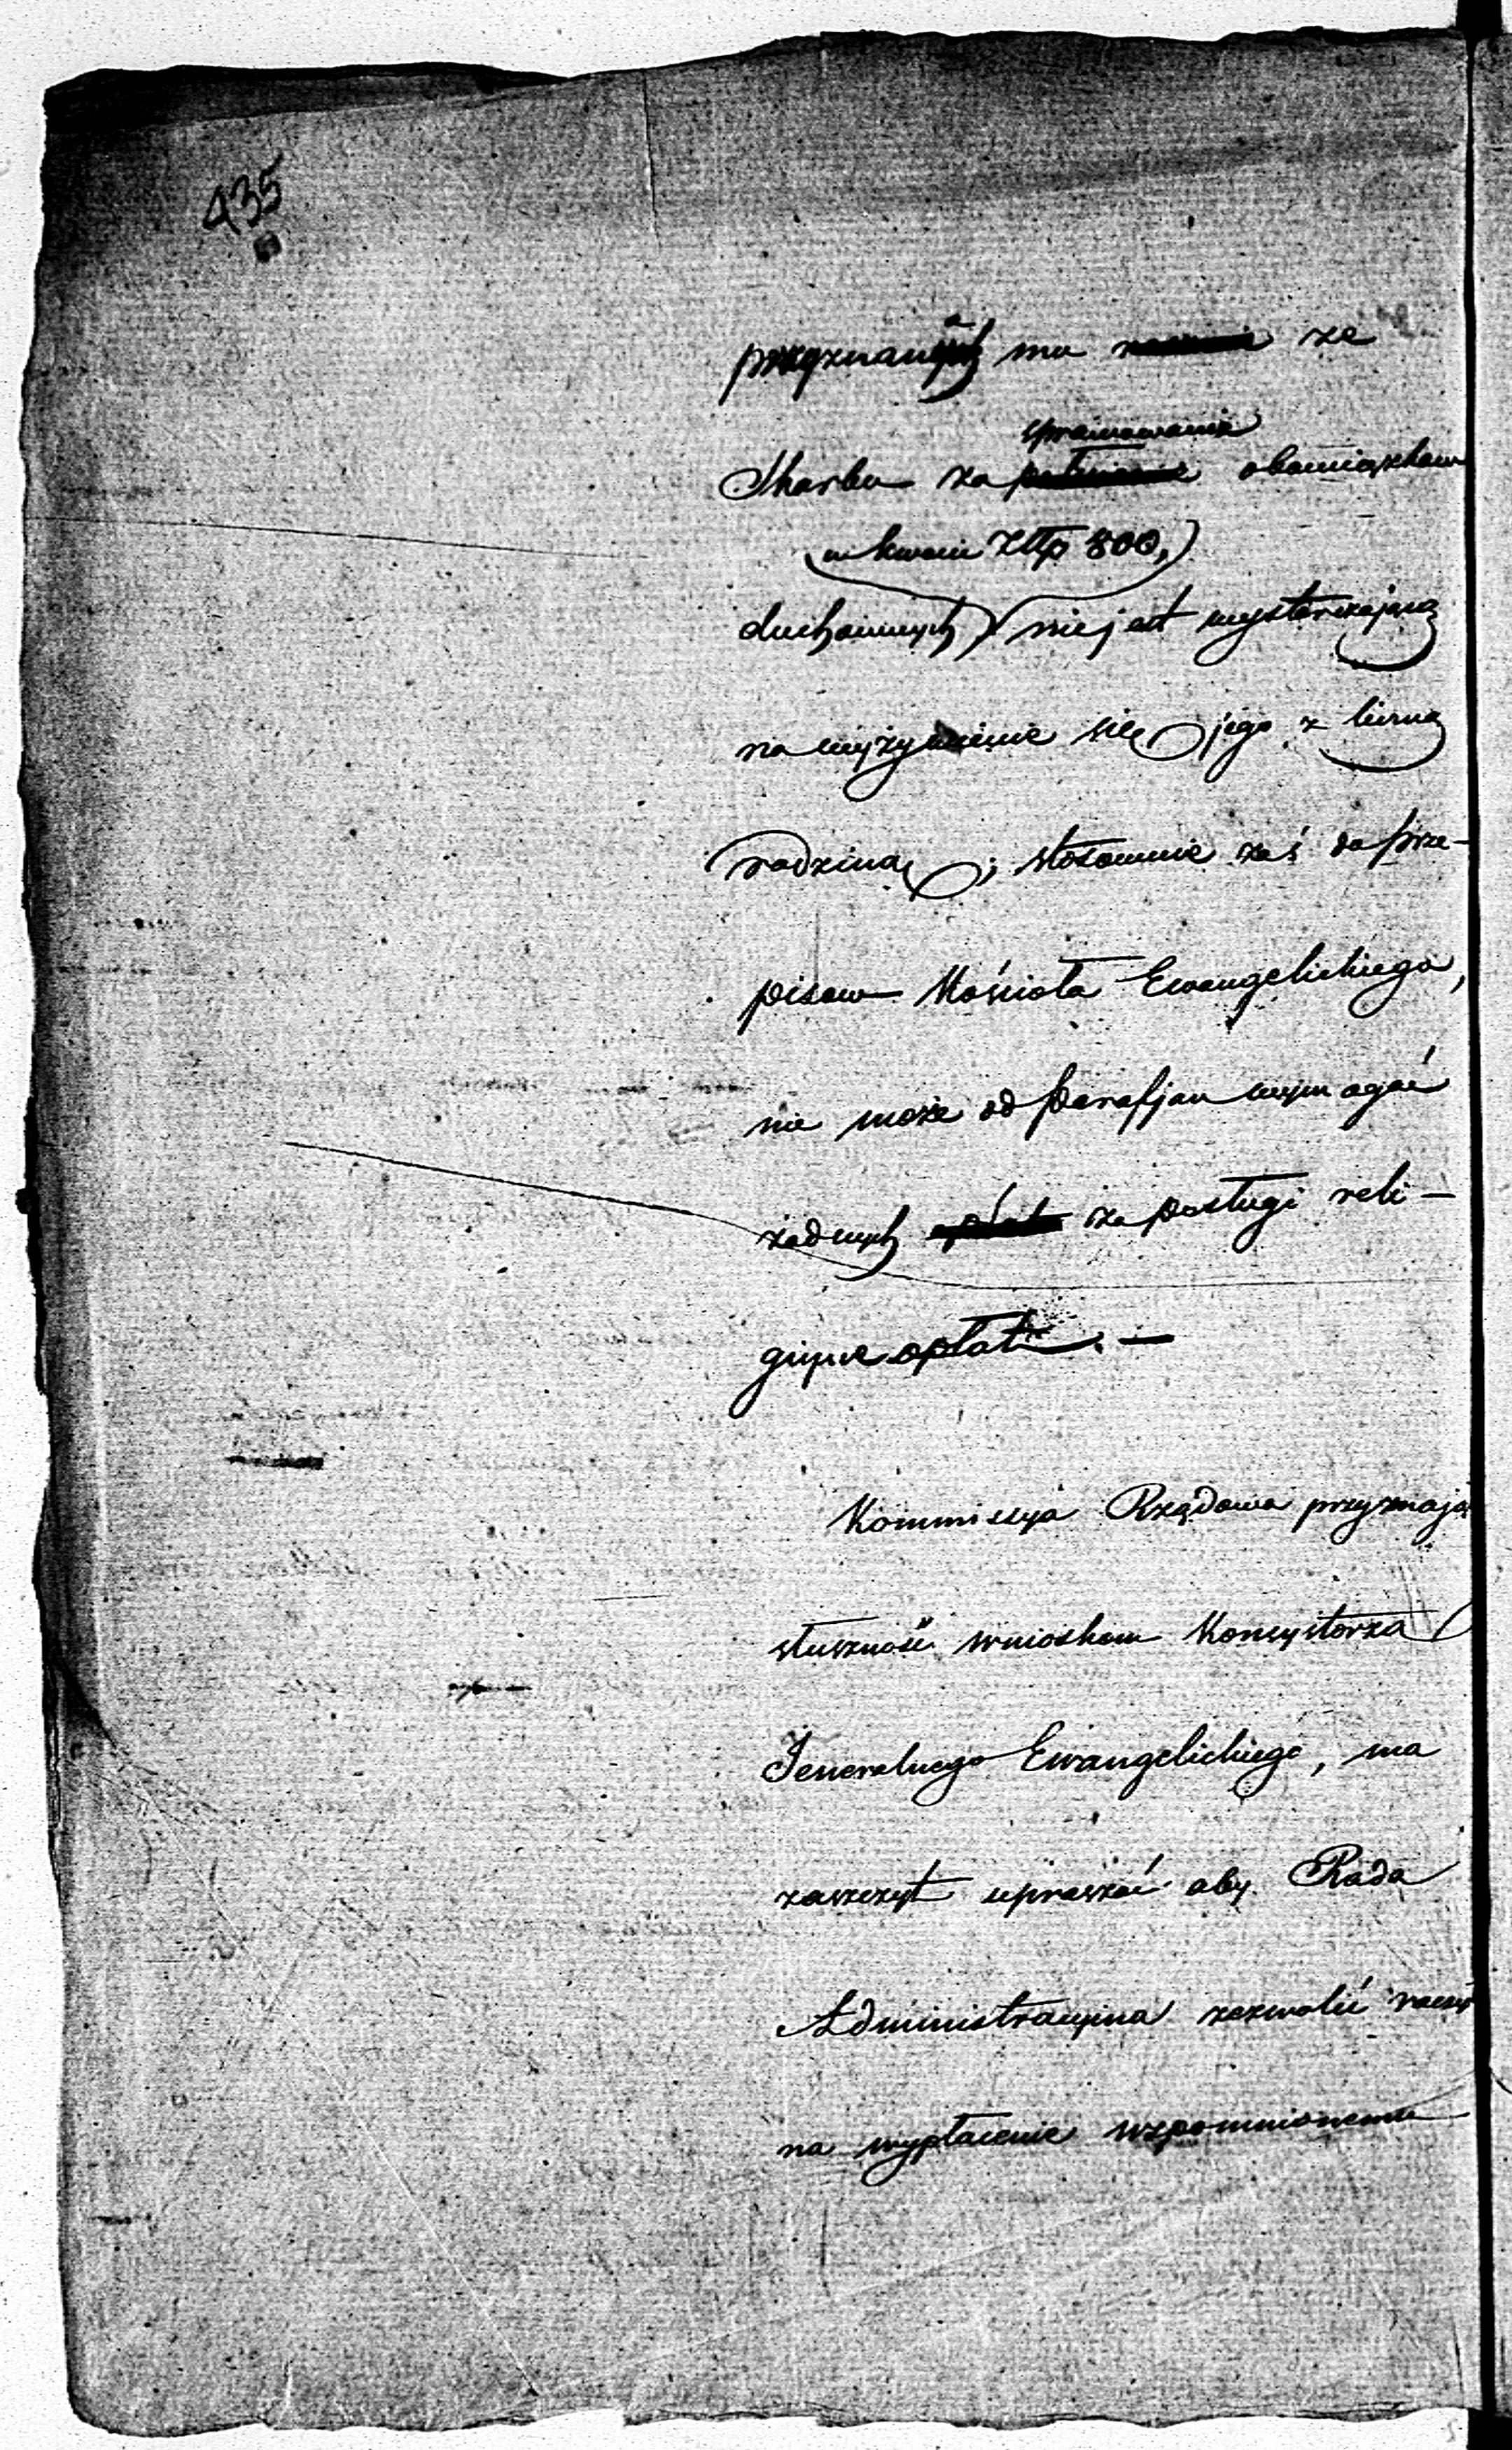 435
przyznana mu ze
sprawowanie
Skarbu za obowiązków
w kwocie Złtp 800,
duchownych nie jest wystarczającą
na wyżywienie się jego z liczną
rodziną; stosownie zaś do prze-
pisów Kościoła Ewangelickiego,
nie może od Parafjan wymagać
żadnych za posługi reli-
gijne opłat. —
Kommissya Rządowa przyznając
słuszność wnioskom Konsystorza
Jeneralnego Ewangelickiego, ma
zaszczyt upraszać aby Rada
Administracyjna zezwolić raczy
na wypłacenie wspomnionemu